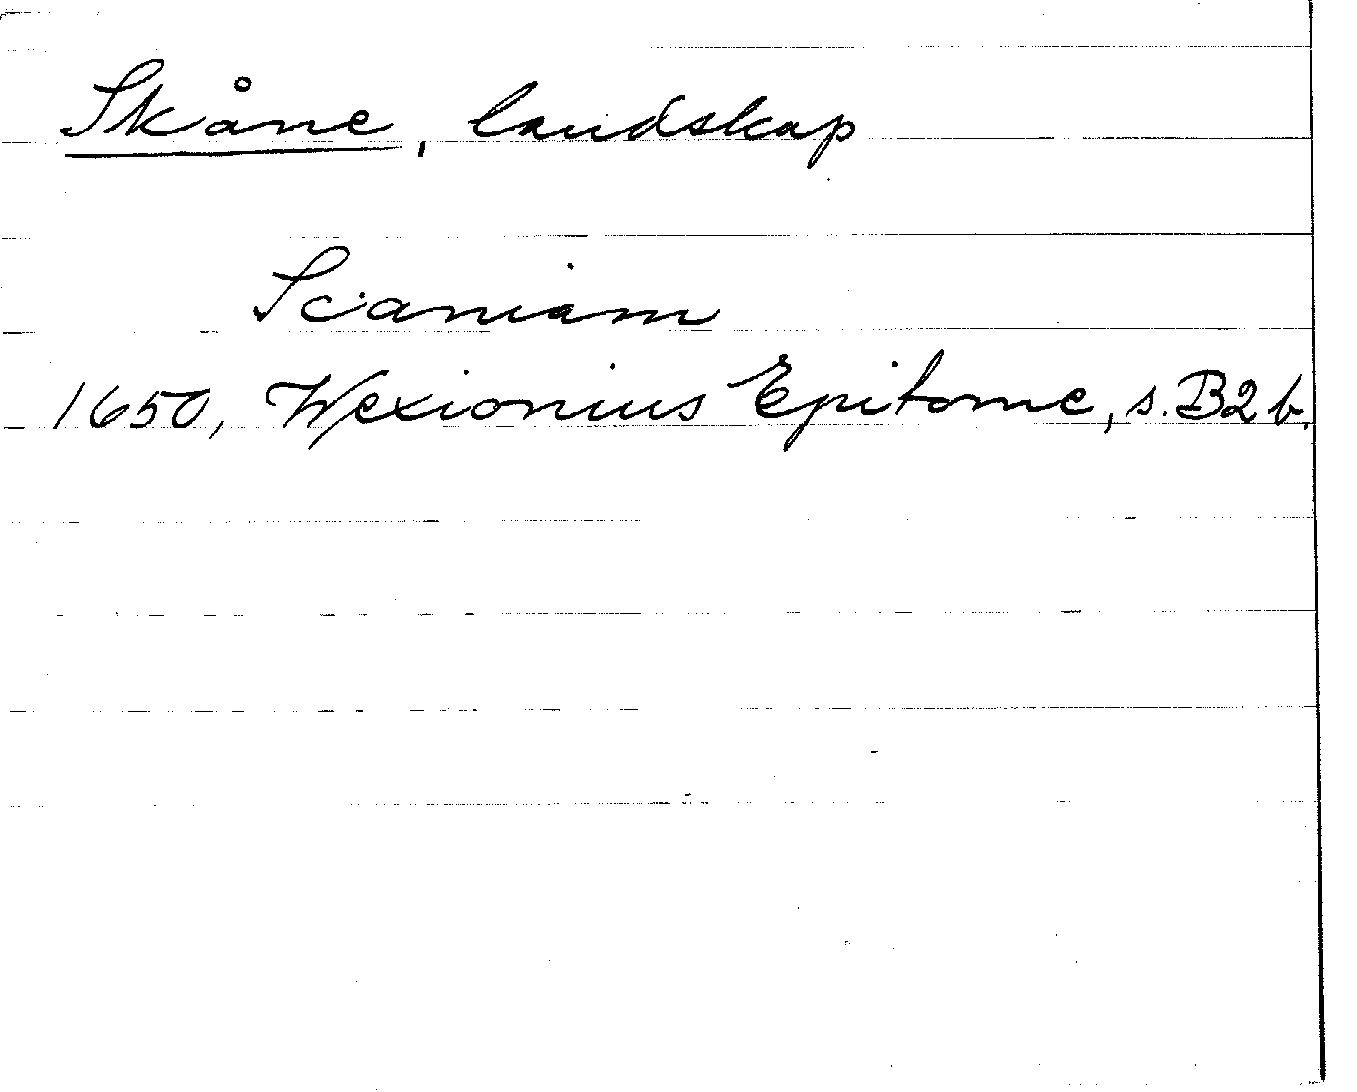 Skåne, landskap
Scaniam
1650, Wexionius Epitome, s. B2b.